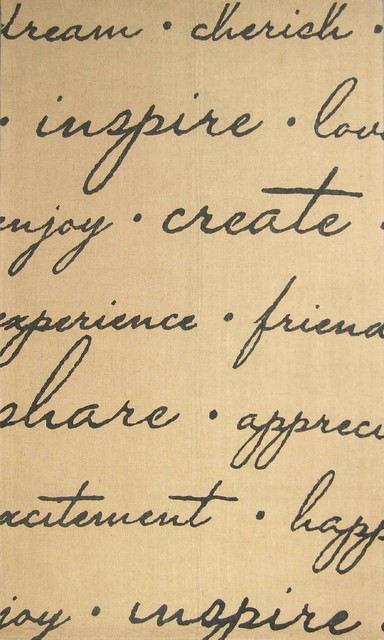 dream • cherich •
• inspire • love
enjoy • create •
experience • friend
share • appreci
excitement • happ
joy • inspire •